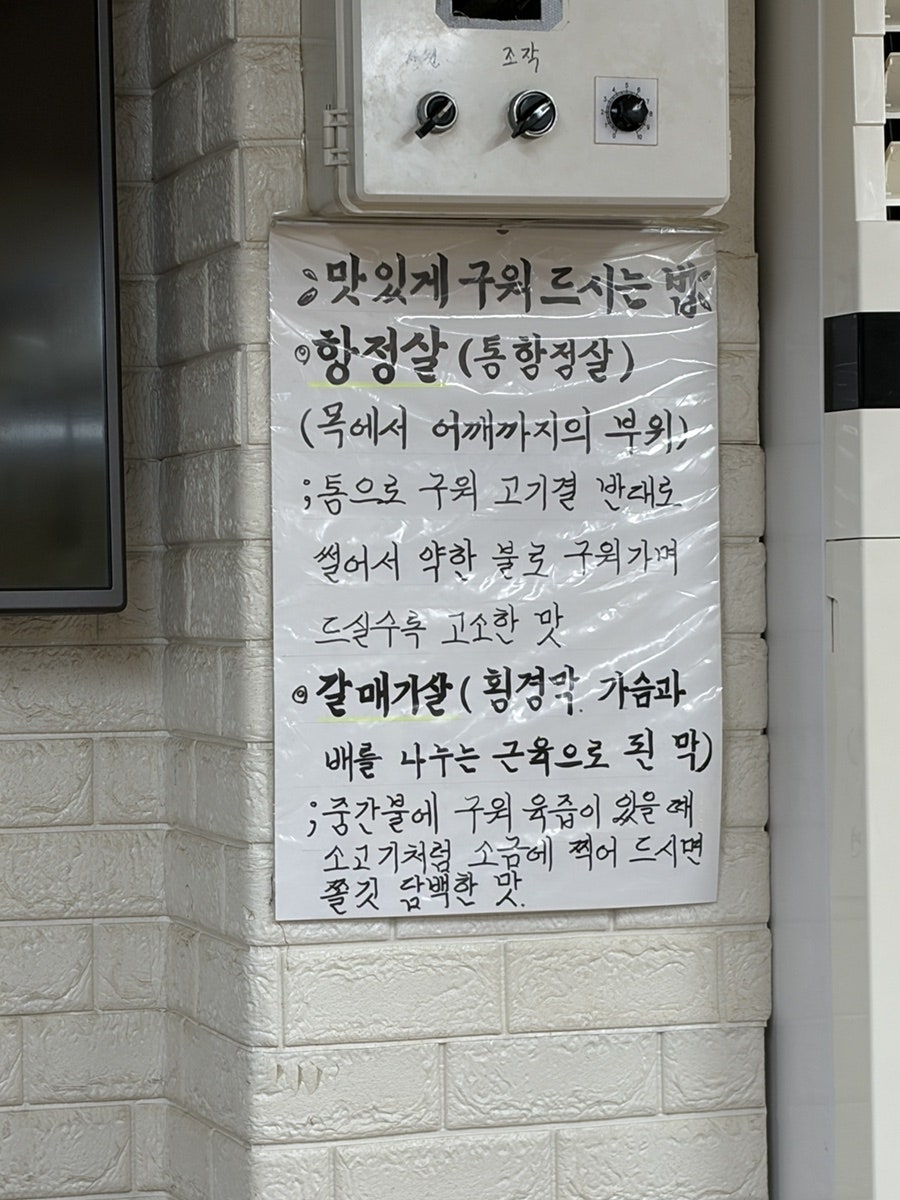 조작
;맛있게 구워 드시는 법;
◎항정살 (통항정살)
(목에서 어깨까지의 부위)
;통으로 구워 고기결 반대로
썰어서 약한 불로 구워가며
드실수록 고소한 맛
◎갈매기살 (횡경막. 가슴과
배를 나누는 근육으로 된 막)
;중간불에 구워 육즙이 있을 때
소고기처럼 소금에 찍어 드시면
쫄깃 담백한 맛.